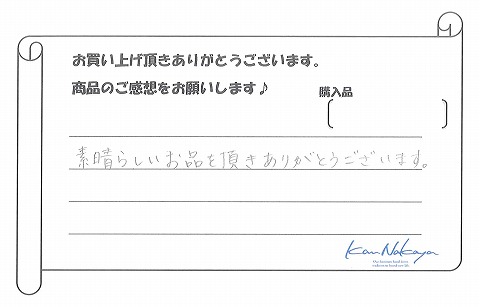 お買い上げ頂きありがとうございます。
商品のご感想をお願いします♪
購入品
素晴らしいお品を頂きありがとうございます。
Kan Nakaya